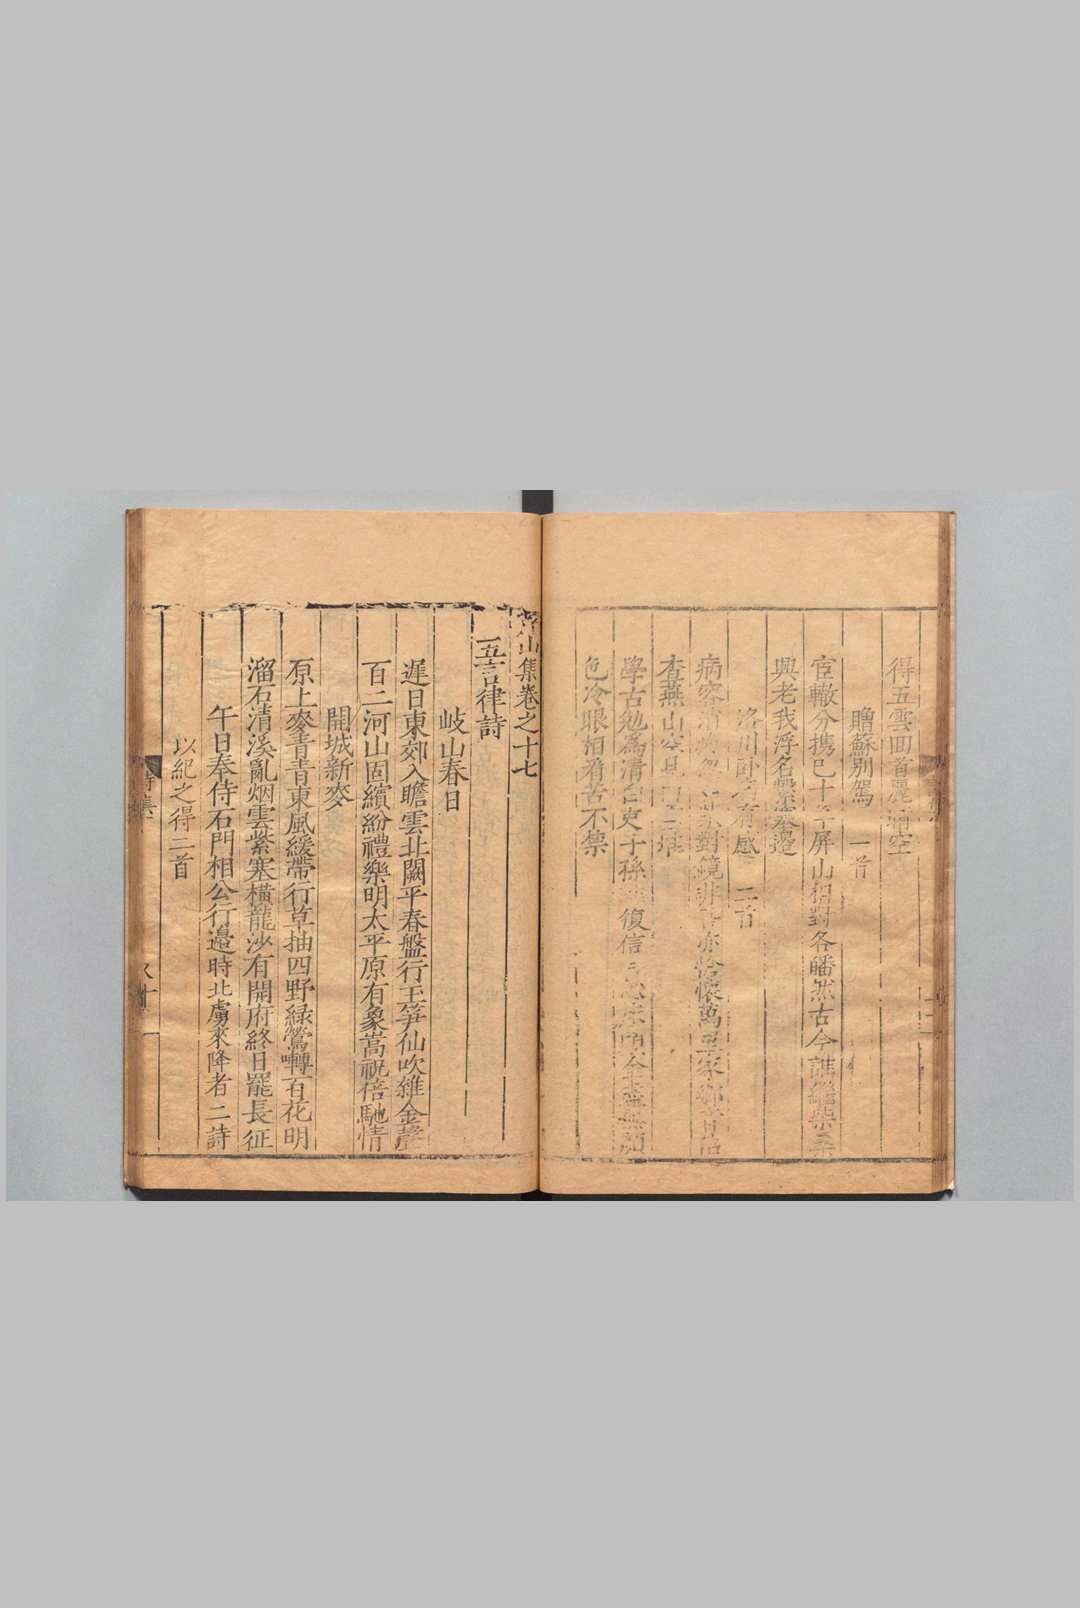 得五雲回首麗晴空
贈蘇別駕 一首
宦轍分攜已十年屏山相對各皤然古今誰繼
興老我浮名繫塞邊
洛川臥病有感 二首
病容對鏡非吾亦愴懷萬里家鄉
杳燕山
學古勉為清白吏子孫復信金盡無顏
色冷眼相看苦不禁
山集卷之十七
五言律詩
岐山春日
遲日東郊入瞻雲北闕平春盤行玉笋仙吹雜金莖
百二河山固繽紛禮樂明太平原有象嵩祝倍馳情
開城新麥
原上麥青青東風緩帶行草抽四野綠鶯囀百花明
溜石清溪亂烟雲紫塞橫龍沙有開府終日罷長征
午日奉侍石門相公行邊時北虜來降者二詩
以紀之得二首